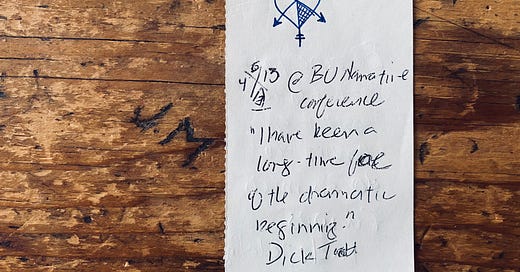 4/6/13 @ BU Narrative
conference
"I have been a
long-time foe
of the dramatic
beginning."
Dick Todd